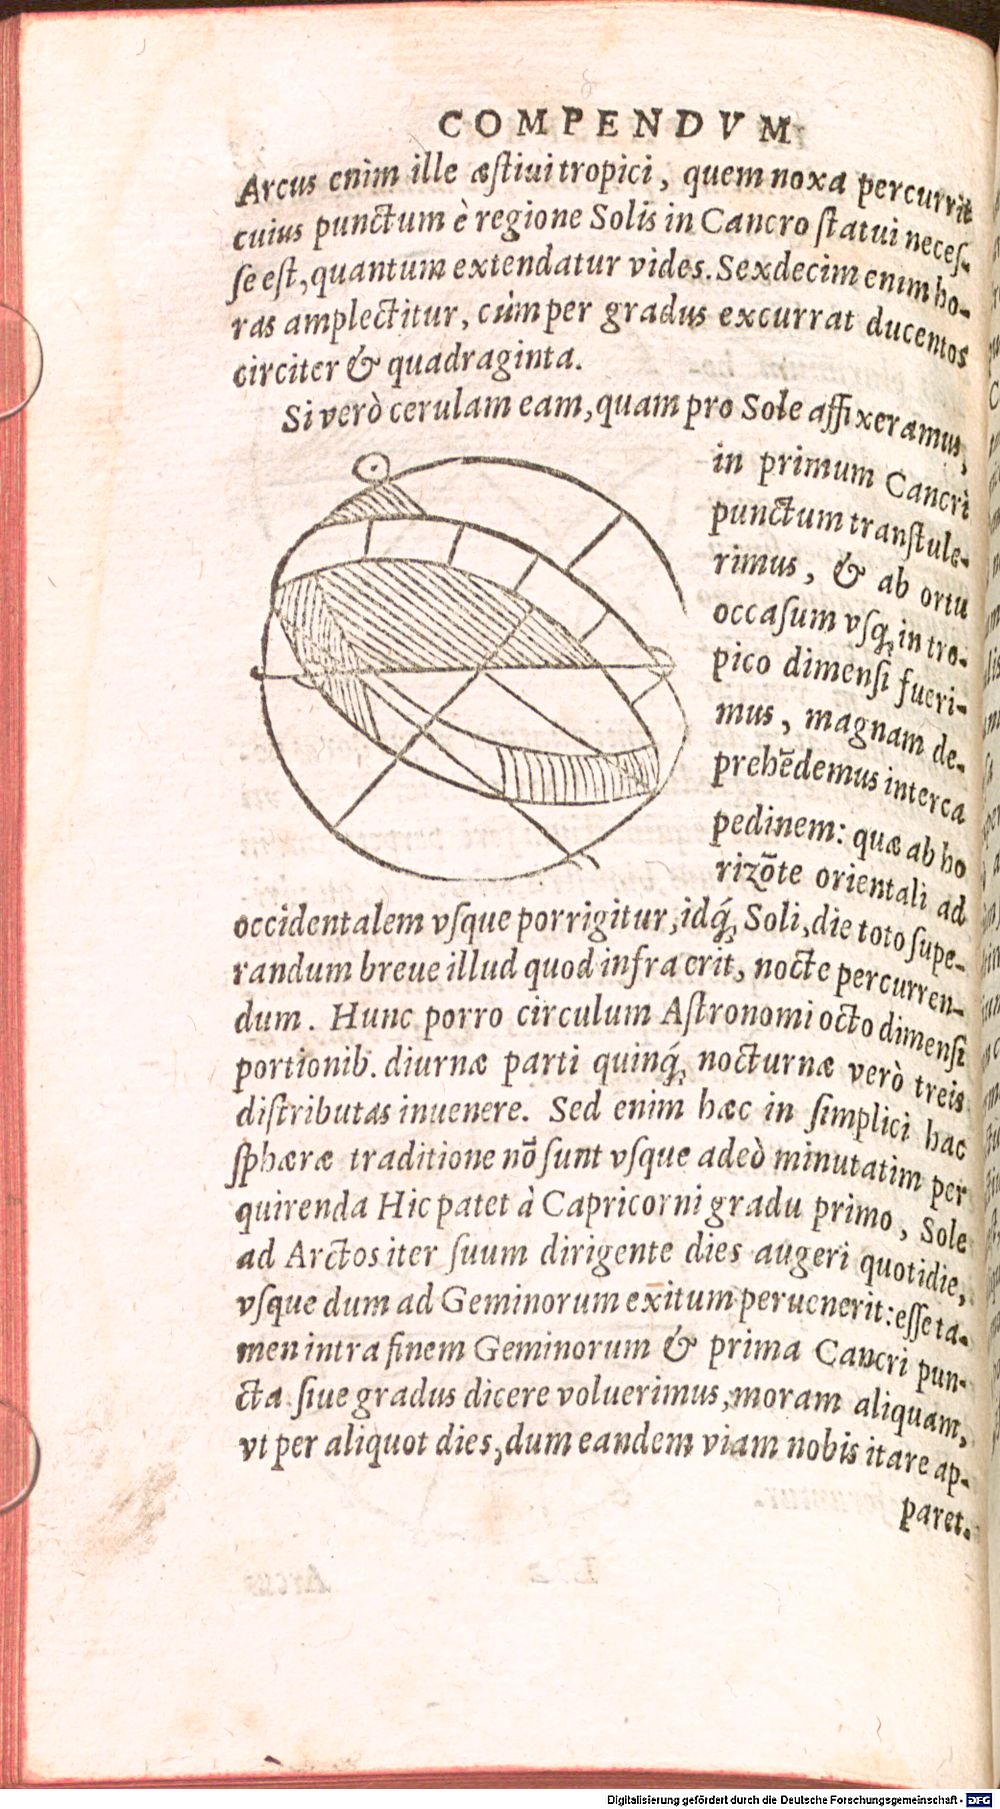 COMPENDVM
Arcus enim ille æſtiui tropici, quem noxa percurrit
cuius punctum è regione Solis in Cancro ſtatui neceſ-
ſe eſt, quantum extendatur vides. Sexdecim enim ho-
ras amplectitur, cùm per gradus excurrat ducentos
circiter & quadraginta.
Si verò cerulam eam, quam pro Sole affixeramus,
in primum Cancri
punctum tranſtule-
rimus, & ab ortu
occaſum vſq; in tro-
pico dimenſi fueri-
mus, magnam de-
prehēdemus interca
pedinem: quæ ab ho
rizōte orientali ad
occidentalem vſque porrigitur, idq́; Soli, die toto ſupe-
randum breue illud quod infra erit, nocte percurren-
dum. Hunc porro circulum Aſtronomi octo dimenſi
portionib. diurnæ parti quinq́; nocturnæ verò treis
diſtributas inuenere. Sed enim hæc in ſimplici hac
ſphæræ traditione nō ſunt vſque adeò minutatim per
quirenda Hic patet à Capricorni gradu primo, Sole
ad Arctos iter ſuum dirigente dies augeri quotidie,
vſque dum ad Geminorum exitum peruenerit: eſſe ta-
men intra finem Geminorum & prima Cancri pun-
cta ſiue gradus dicere voluerimus, moram aliquam,
vt per aliquot dies, dum eandem viam nobis itare ap-
paret.
Digitalisierung gefördert durch die Deutsche Forschungsgemeinschaft - DFG